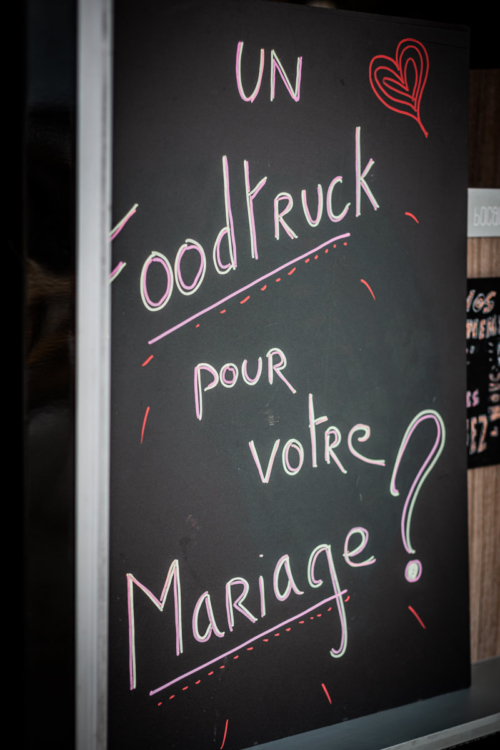 UN
Foodtruck
pour
votre
Mariage ?